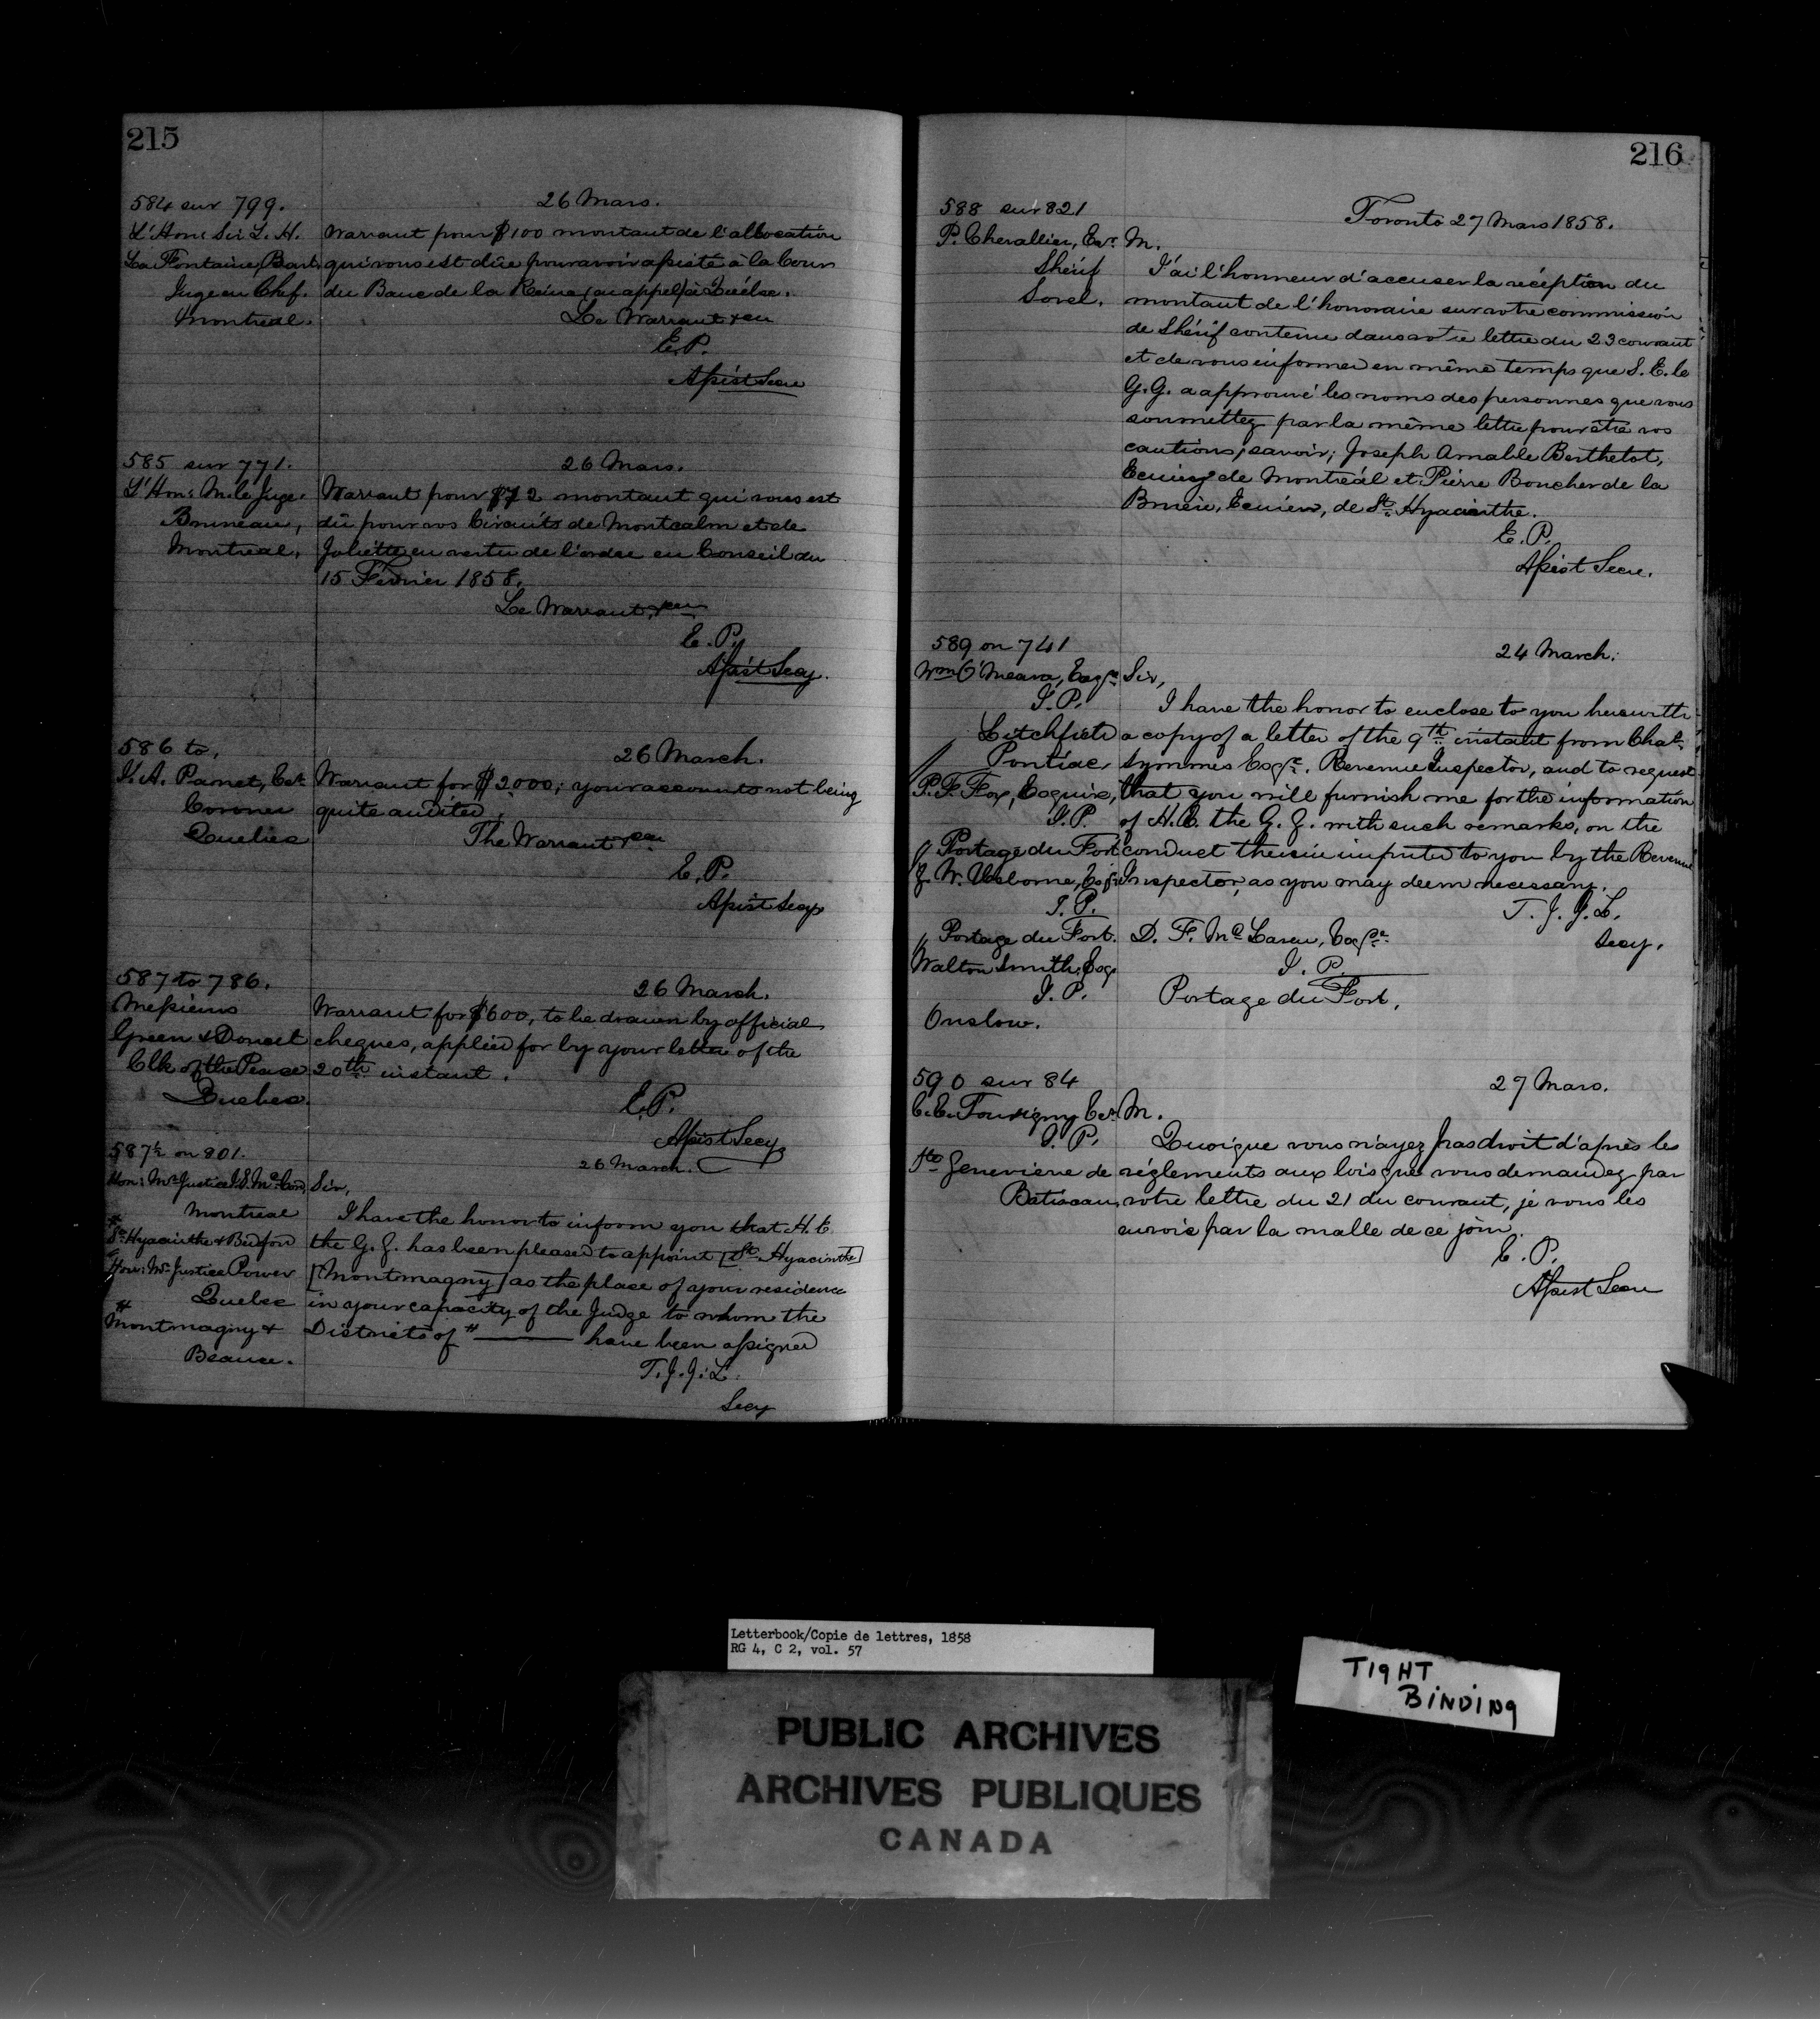 215
584 sur 799.
26 Mars.
L'Hon: Sir L. H.
La Fontaine, Bart.
Juge en Chef.
Montreal.
Warrant pour $100 montant de l'allocation
qui vous est dûe pour avoir assisté à la Cour
du Banc de la Reine (en appel) à Québec.
Le Warrant
E.P.
Assist Secre
585 sur 771.
26 Mars.
L'Hon: M. le Juge
Bruneau,
Montreal,
Warrant pour $72 montant qui vous est
dû pour vos Circuits de Montcalm et de
Joliette en vertu de l'ordre en Conseil du
15 Février 1858.
Le Warrant
E.P.
Assist Secy.
586 to,
26 March.
Panet, Esq.
Coroner
Quebec
Warrant for $2000; your accounts not being
quite audited.
The Warrant
E.P.
Assist Secy
587 to 786.
26 March.
Messieurs
Green & Doucet
Clk of the Peace
Quebec.
Warrant for $600, to be drawn by official
cheques, applied for by your letter of the
20th instant.
E.P.
Assist Secy
587½ on 801.
26 March.
Hon: Mr Justice McCord,
Montreal
# St Hyacinthe & Bedford
Hon: Mr Justice Power
Quebec
# Montmagny &
Beauce.
Sir,
I have the honor to inform you that H. E.
the G. G. has been pleased to appoint [St Hyacinthe]
[Montmagny] as the place of your residence
in your capacity of the Judge to whom the
Districts of # ——— have been assigned
T. J. J. L.
Secy
216
588 sur 821
Toronto 27 Mars 1858.
P. Chevallier, Ecr.
Shérif
Sorel.
M.
J'ai l'honneur d'accuser la réception du
montant de l'honoraire sur votre commission
de Shérif contenu dans votre lettre du 23 courant
et de vous informer en même temps que S. E. le
G. G. a approuvé les noms des personnes que vous
soumettez par la même lettre pour être vos
cautions, savoir; Joseph Amable Berthelot,
Ecuier de Montreál et Pierre Boucher de la
Bruère, Ecuier, de St. Hyacinthe.
E. P.
Assist Secre.
589 on 741
24 March.
Wm O'Meara, Esqre
J. P.
Litchfield
Pontiac
P. F. Fox, Esquire,
J. P.
Portage du Fort
W. Usborne, Esqr
J. P.
Portage du Fort.
Walton Smith, Esq.
J. P.
Onslow.
Sir,
I have the honor to enclose to you herewith
a copy of a letter of the 9th instant from Chas
Symmes Esqre. Revenue Inspector, and to request
that you will furnish me for the information
of H. E. the G. G. with such remarks, on the
conduct therein imputed to you by the Revenue
Inspector, as you may deem necessary.
T. J. J. L.
Secy.
D. F. McLaren, Esqre
J. P.
Portage du Fort.
590 sur 84
27 Mars.
C. E. Tourigny Ecr.
J. P.
Ste Genevieve de
Batiscan,
M.
Quoique vous n'ayez pas droit d'après les
réglements aux lois que vous demandez par
votre lettre du 21 du courant, je vous les
envois par la malle de ce jour.
E. P.
Assist Secre
Letterbook/Copie de lettres, 1858
RG 4, C 2, vol. 57
TIGHT
BINDING
PUBLIC ARCHIVES
ARCHIVES PUBLIQUES
CANADA